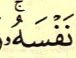 نَفْسَهُۥۚ